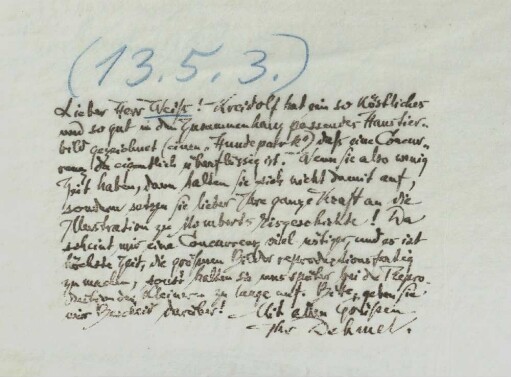 (13.5.3.)
Lieber Herr Weiß! Kreidolf hat ein so köstliches
und so gut in den Zusammenhang passendes Haustier-
bild gezeichnet (einen "Hundepatri
daß eine Concur-
renz da eigentlich überflüssig ist. Wenn Sie also wenig
Zeit haben, dann halten Sie sich nicht damit auf,
sondern setzen Sie lieber Ihre ganze Kraft an die
Illustration zu Momberts Eisgeschichte! Da
scheint mir eine Concurrenz viel nötiger, und es ist
höchste Zeit, die größeren Bilder reproductionsfertig
zu machen, sonst halten sie uns später bei die Repro-
duction der kleineren zu lange auf. Bitte, geben Sie
mir Bescheid darüber! Mit allen Grüßen
Ihr Dehmel.